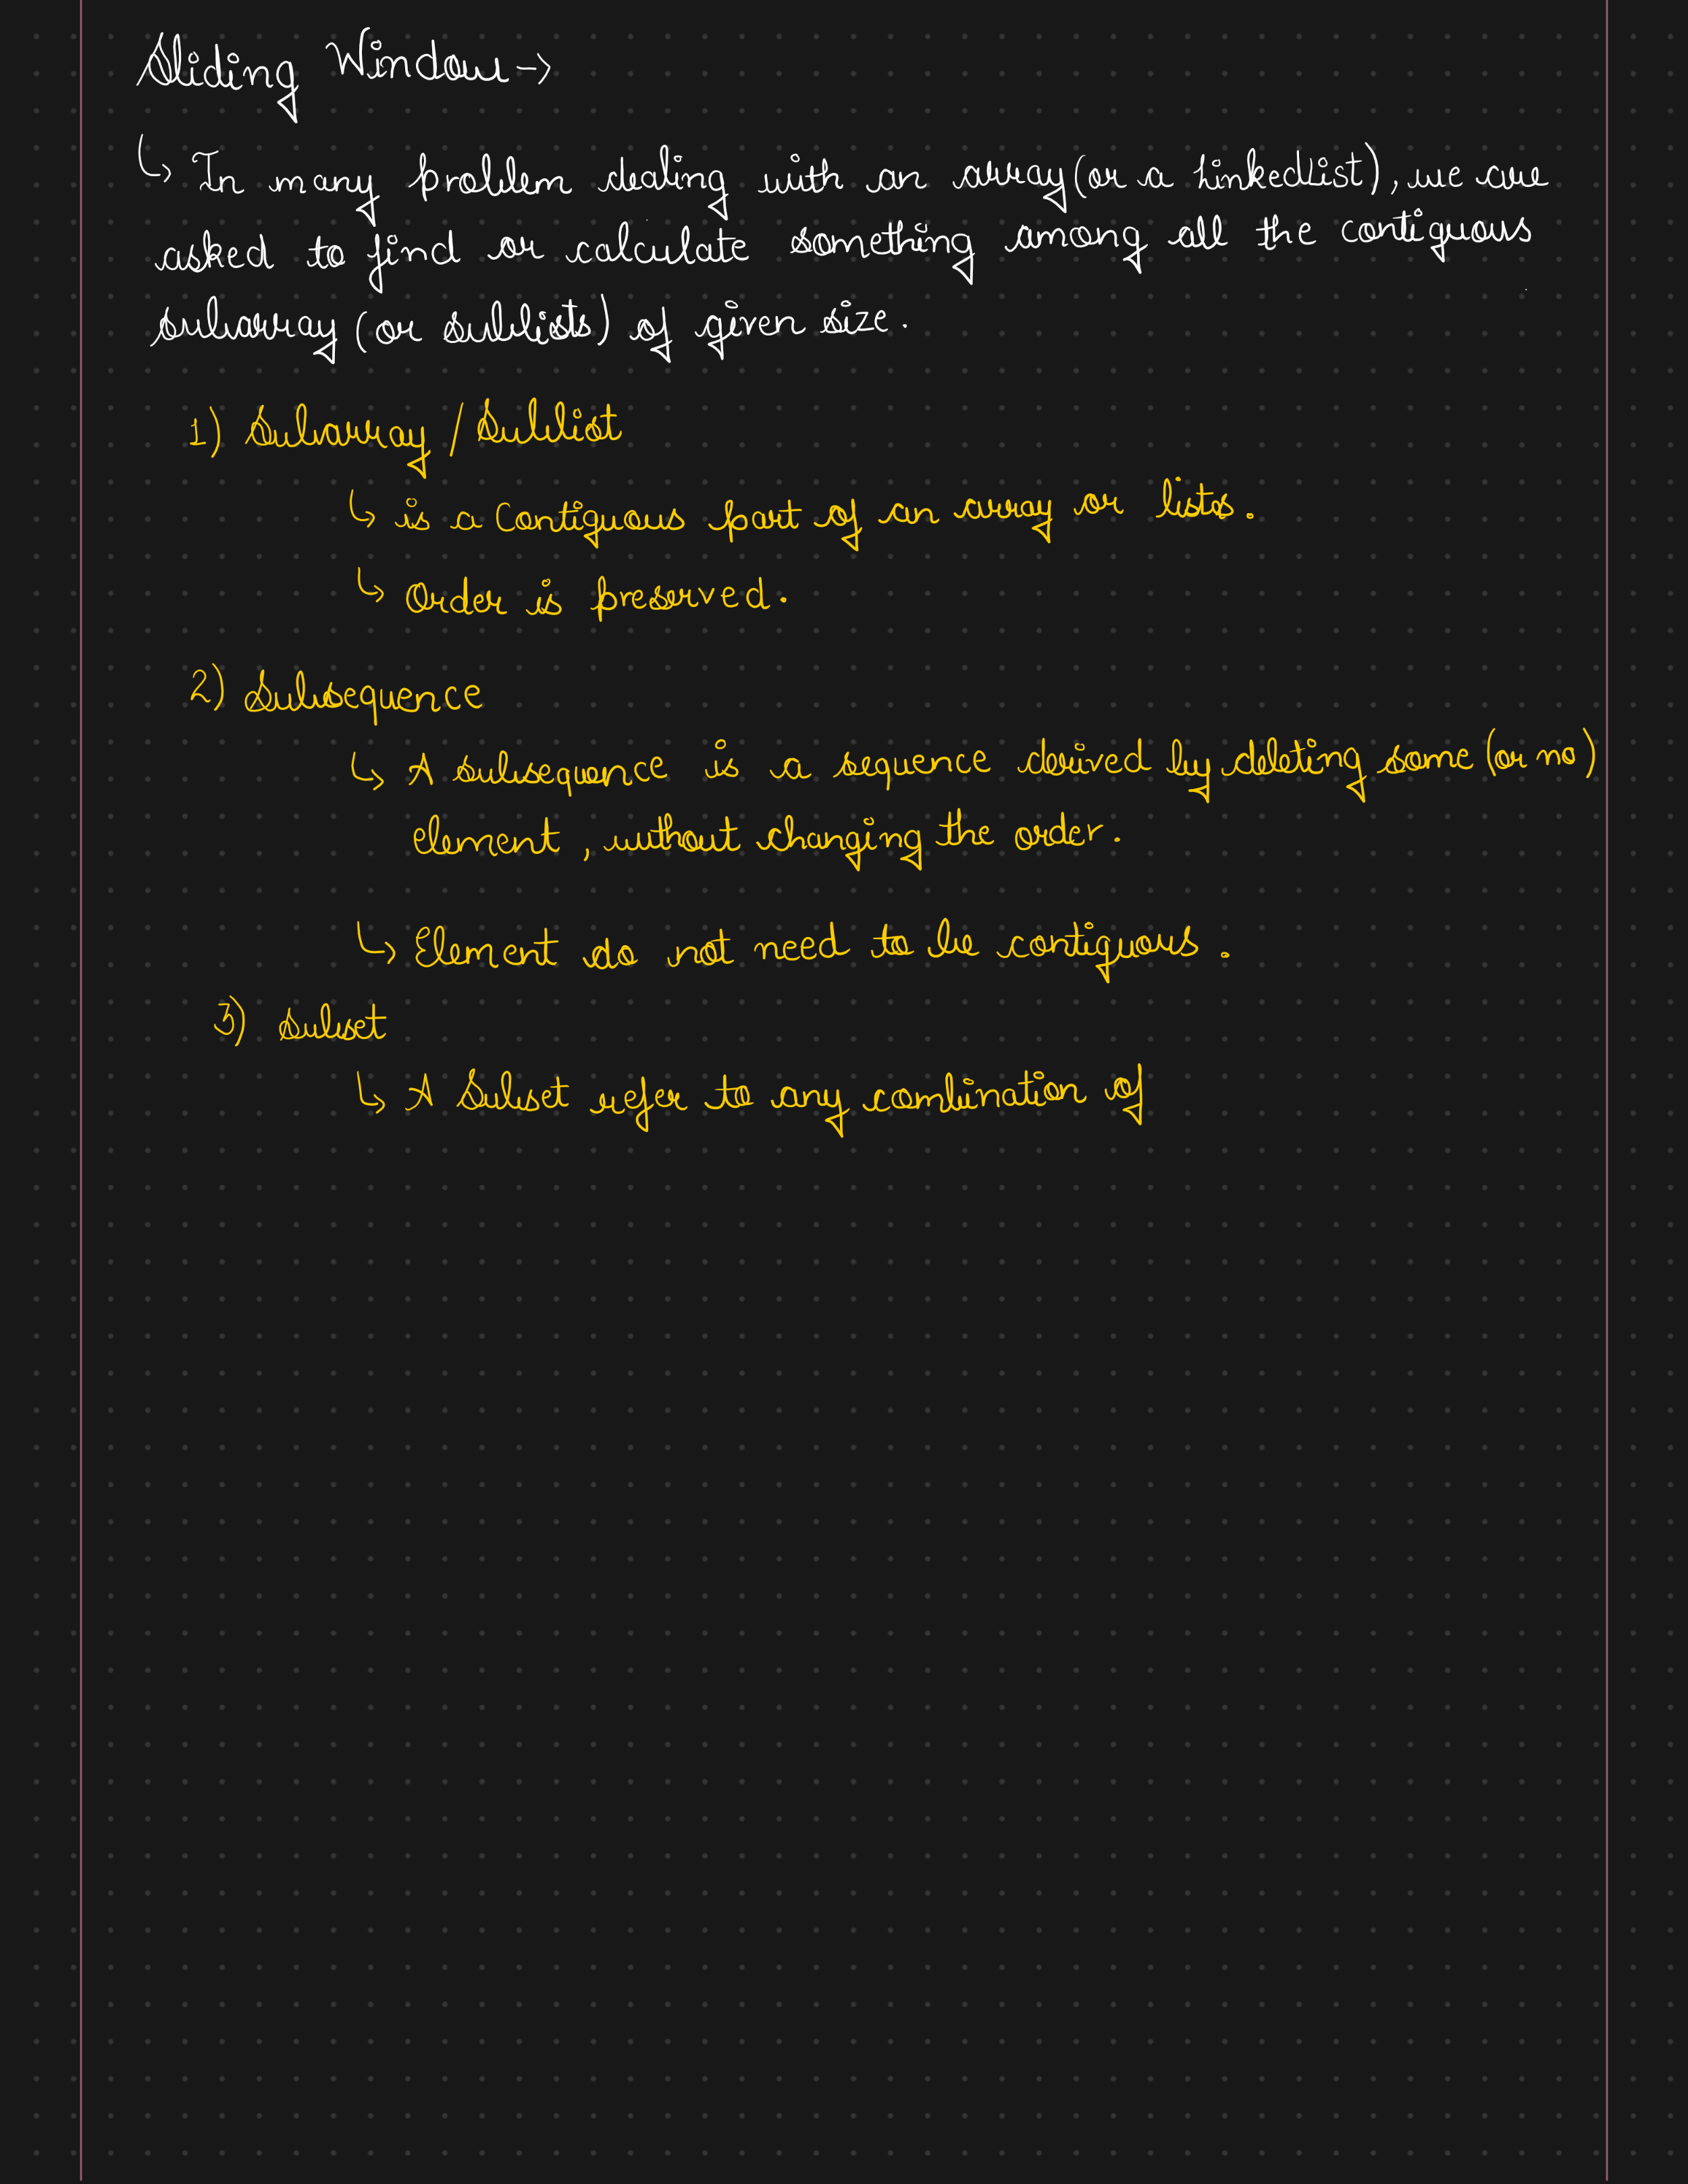 Sliding Window →
↳ In many problem dealing with an array (or a LinkedList), we are
asked to find or calculate something among all the contiguous
subarray (or sublists) of given size.
1) Subarray / Sublist
↳ is a Contiguous part of an array or lists.
↳ Order is preserved.
2) Subsequence
↳ A subsequence is a sequence derived by deleting some (or no)
element, without changing the order.
↳ Element do not need to be contiguous.
3) Subset
↳ A Subset refer to any combination of